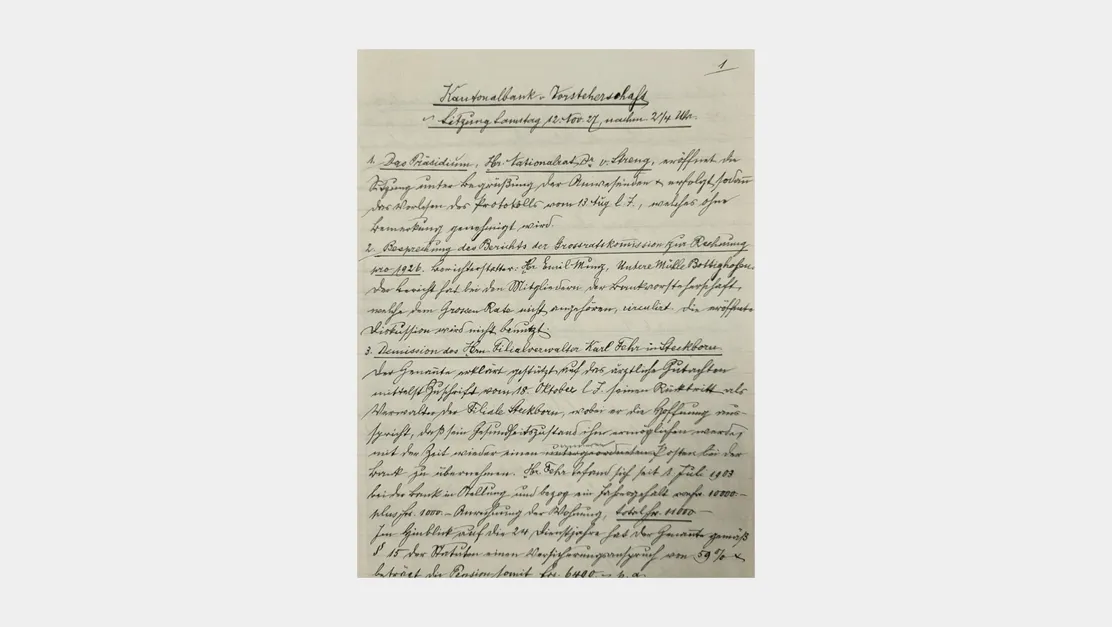 1
Kantonalbank-Vorsteherschaft
Sitzung Samstag, 12. Nov. 27, nachm. 2 1/4 Uhr.
1. Das Präsidium, Hr. Nationalrat Dr. v. Streng, eröffnet die
Sitzung unter Begrüßung der Anwesenden & erfolgt sodann
das Vorlesen des Protokolls vom 13. Aug. l. J., welches ohne
Bemerkung genehmigt wird.
2. Besprechung des Berichts der Grossratskommission zur Rechnung
pro 1926. Berichterstatter: Hr. Emil Munz, Untere Mühle Bottighofen.
Der Bericht hat bei den Mitgliedern der Bankvorsteherschaft,
welche dem Grossen Rate nicht angehören, circulirt. Die eröffnete
Diskussion wird nicht benutzt.
3. Demission des Hrn. Filialverwalter Karl Fehr in Steckborn.
Der Genannte erklärt gestützt auf das ärztliche Gutachten
mittelst Zuschrift vom 18. Oktober l. J. seinen Rücktritt als
Verwalter der Filiale Steckborn, wobei er die Hoffnung aus-
spricht, daß sein Gesundheitszustand ihm ermöglichen werde,
mit der Zeit wieder einen untergeordneten Posten bei der
Bank zu übernehmen. Hr. Fehr befand sich seit 1. Juli 1903
bei der Bank in Stellung und bezog ein Jahresgehalt von fr. 10000.-
plus fr. 1000.- Anrechnung der Wohnung, total fr. 11000.-
Im Hinblick auf die 24 Dienstjahre hat der Genannte gemäß
§ 15 der Statuten einen Versicherungsanspruch von 59% &
beträgt die Pension somit frs. 6490.- p. a.